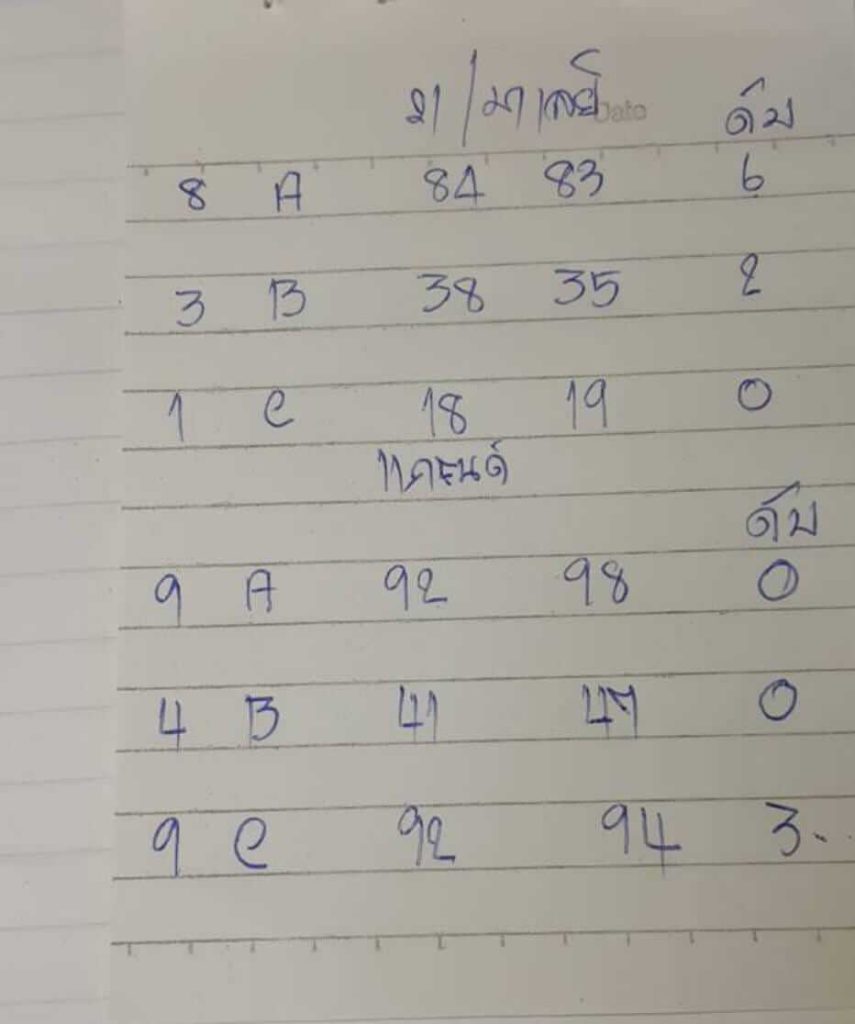 ฮา/มาเลย์ Dato ดับ
8 A 84 83 6
3 B 38 35 2
1 C 18 19 0
แคนนด์
ดับ
9 A 92 98 0
4 B 41 47 0
9 C 92 94 3